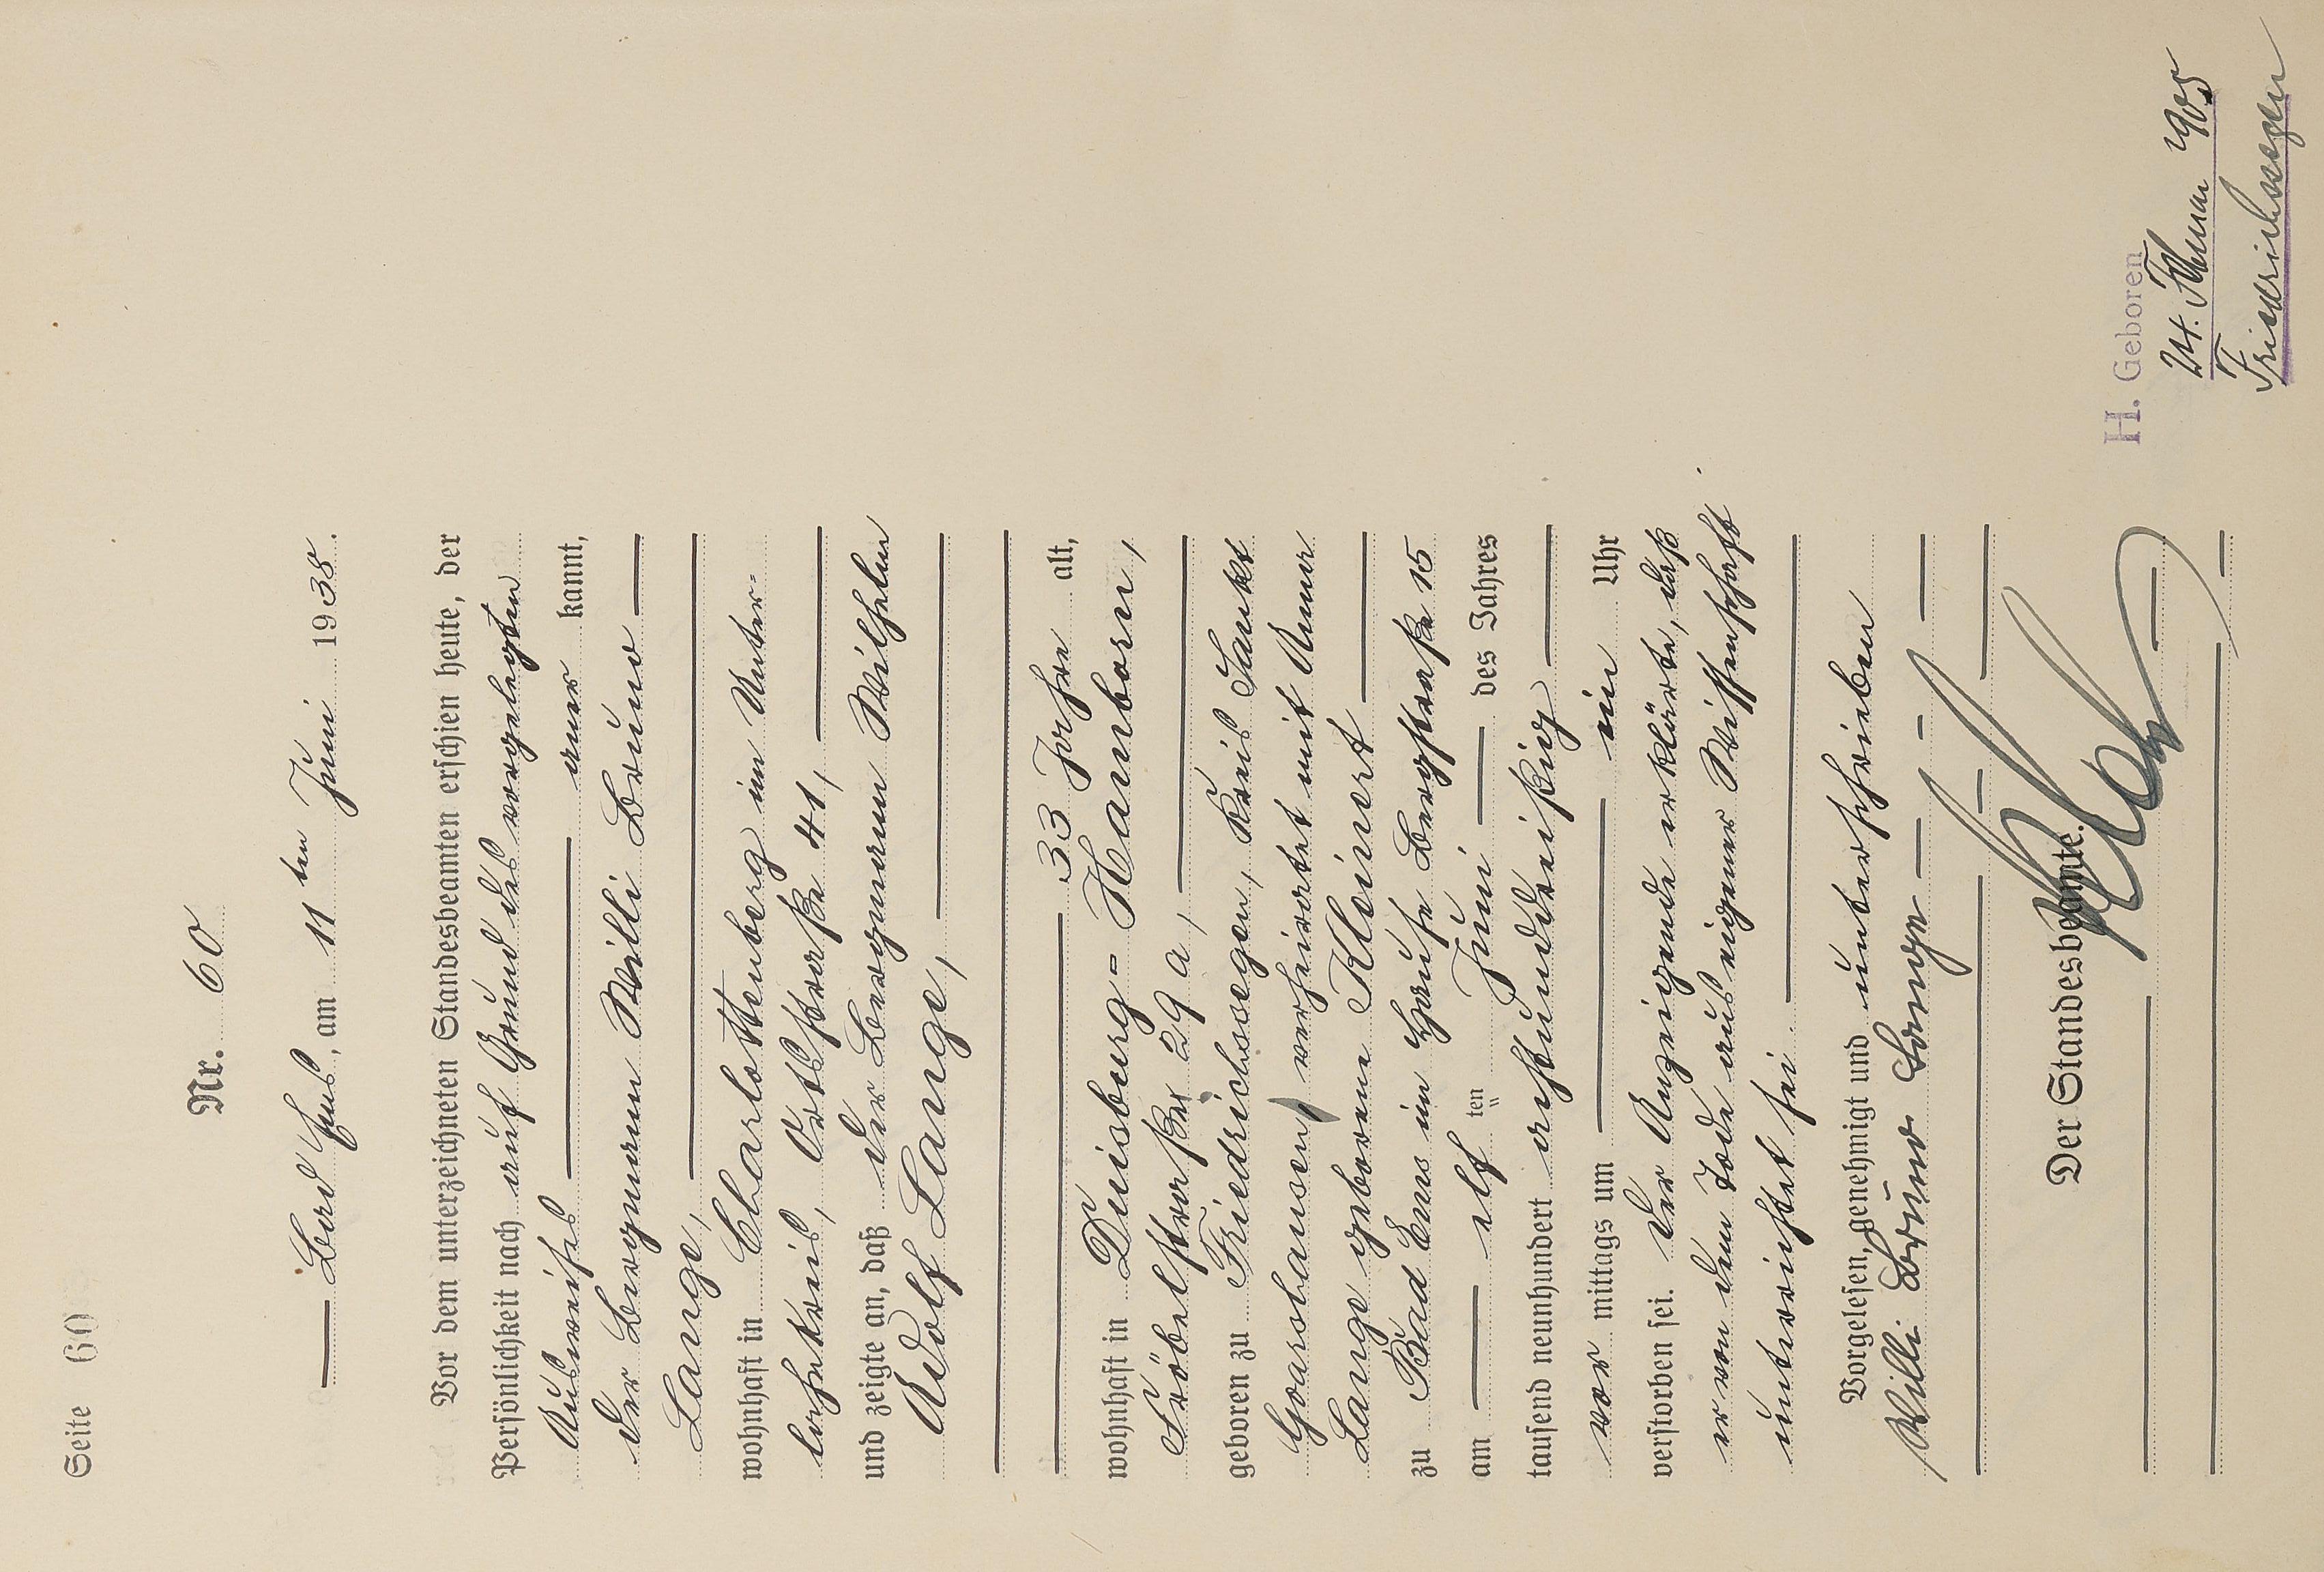 Seite 60
Nr. 60
Bad Ems, am 11ten Juni 1938.
Vor dem unterzeichneten Standesbeamten erschien heute, der
Persönlichkeit nach auf Grund des vorgelegten
Ausweises aner kannt,
der Bergmann Willi Bruno
Lange,
wohnhaft in Charlottenberg im Unter-
lahnkreis, Ortsstraße 41,
und zeigte an, daß der Bergmann Wilhelm
Adolf Lange,
33 Jahre alt,
wohnhaft in Duisburg-Hamborn,
Fröbelstraße 29 a,
geboren zu Friedrichssegen, Kreis Sankt
Goarshausen, verheiratet mit Anna
Lange geborene Kleinert
zu Bad Ems im Hause Bergstraße 15
am elf ten Juni des Jahres
tausend neunhundert achtunddreißig
vor mittags um ein Uhr
verstorben sei. Der Anzeigende erklärte, daß
er von dem Tode aus eigener Wissenschaft
unterrichtet sei.
Vorgelesen, genehmigt und unterschrieben
Willi Bruno Lange
Der Standesbeamte.
H. Geboren
24. 1905
Friedrichssegen